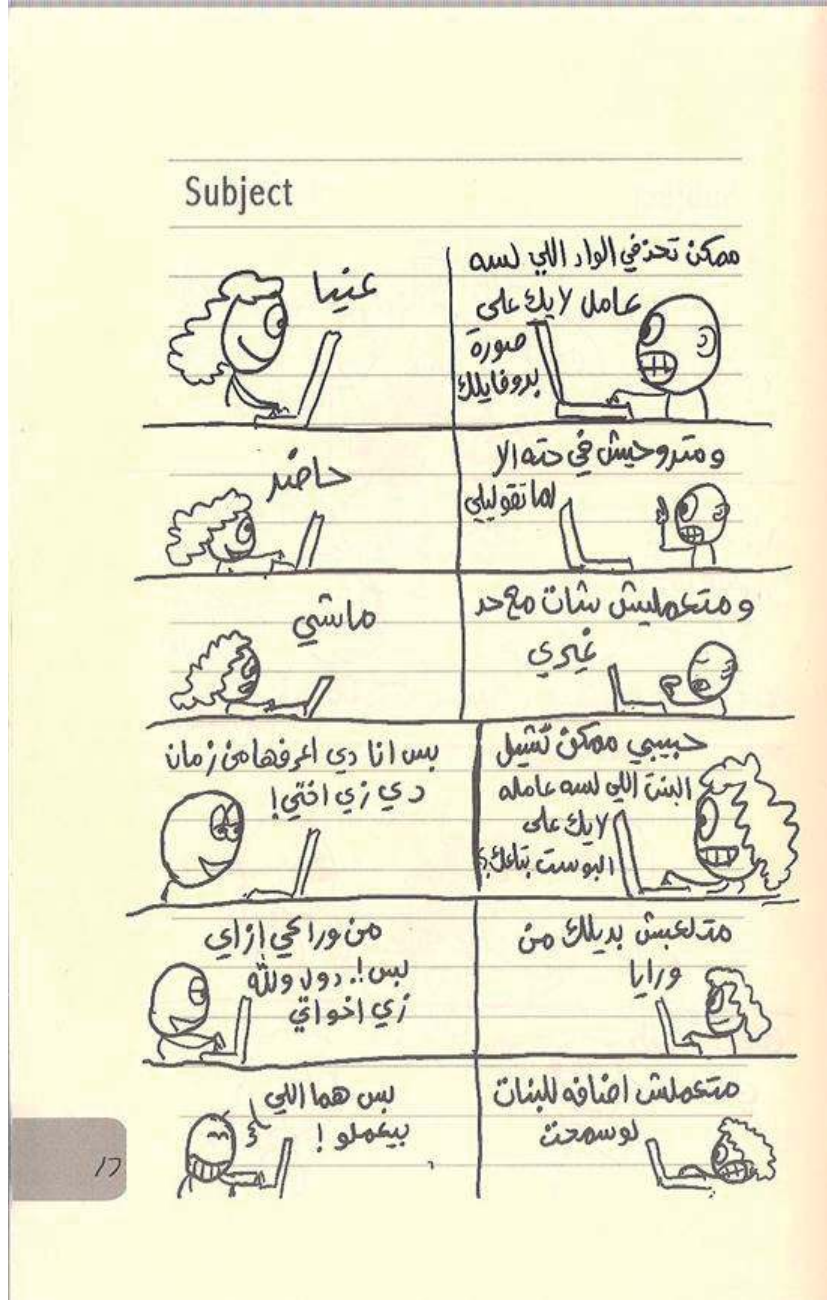 Subject
ممكن تحذفي الواد اللي لسه
عامل لايك على
صورة
بروفايلك
عنيا
ومتروحيش في حته الا
لما تقوليلي
حاضر
ومتعمليش شات مع حد
غيري
ماشي
حبيبي ممكن تشيل
البنت اللي لسه عامله
لايك على
البوست بتاعك؟
بس انا دي اعرفها من زمان
دي زي اختي!
متلعبش بديلك من
ورايا
من وراكي إزاي
بس!. دول والله
زي اخواتي
متعملش اضافه للبنات
لوسمحت
بس هما اللي
بيعملو !